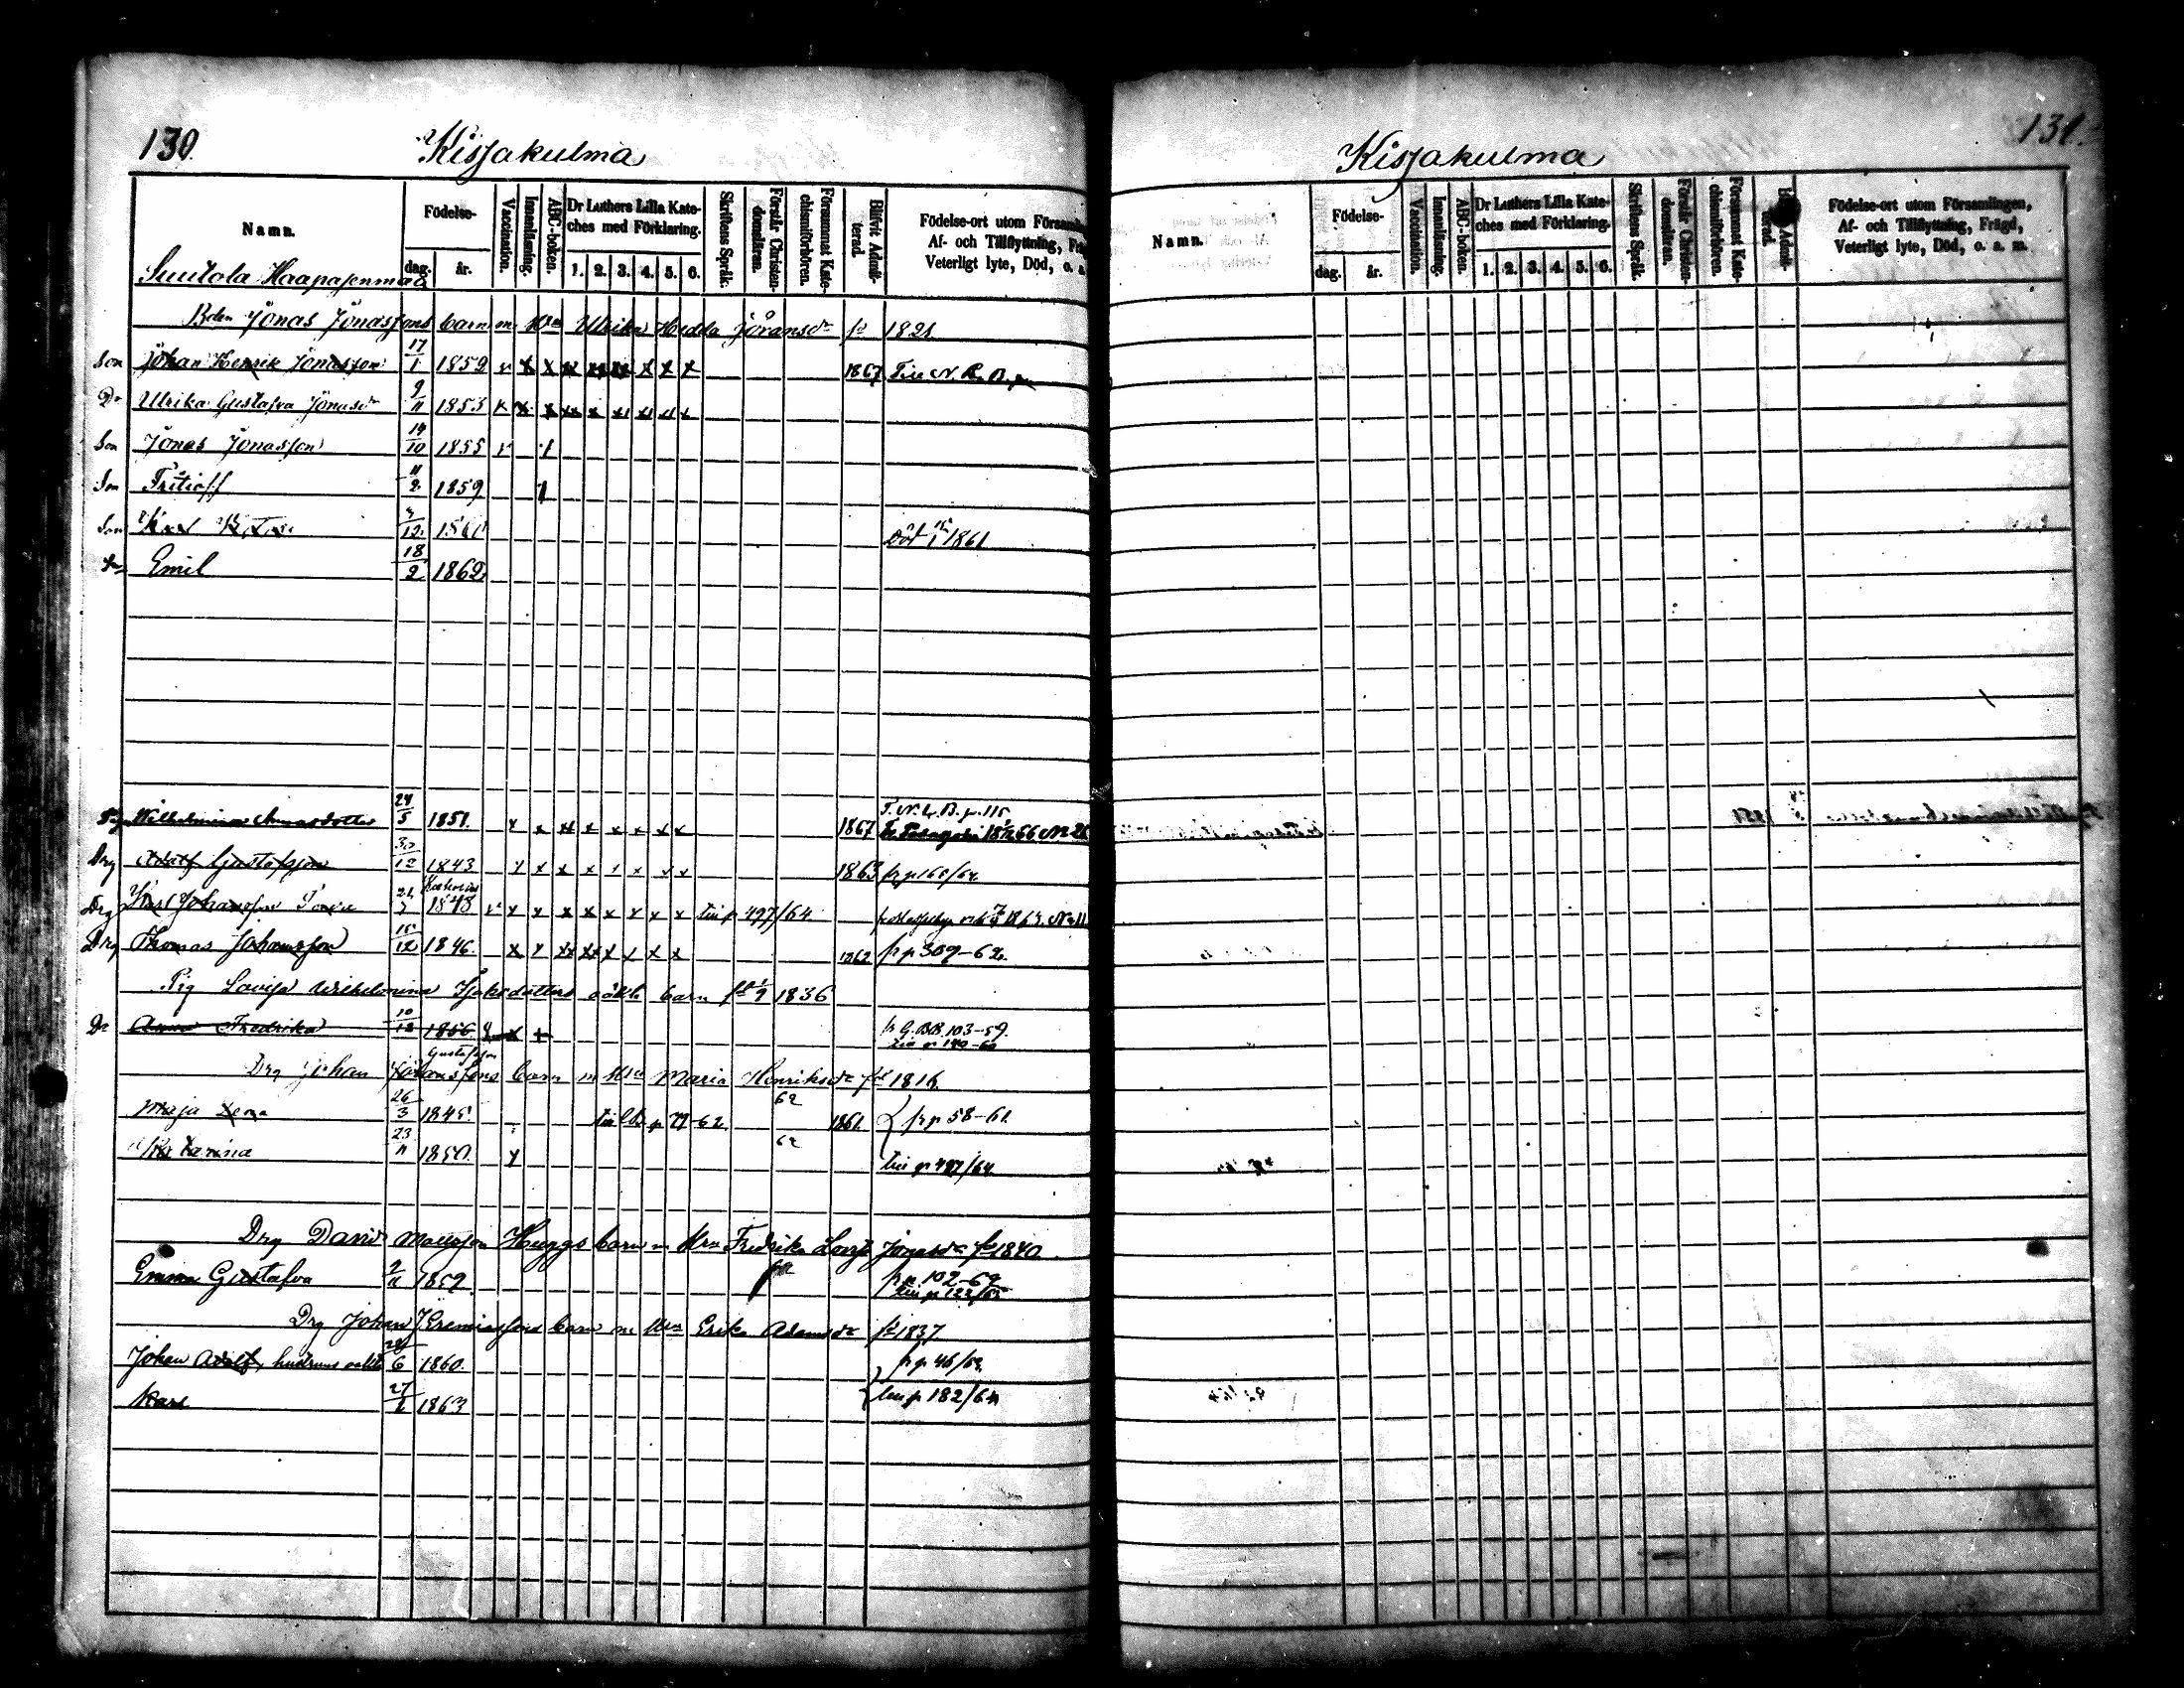 130.
Kisjakulma
Namn.
Födelse-
dag.
år.
Vaccination.
Innanläsning.
ABC-boken.
Dr Luthers Lilla Kateches med Förklaring.
1. 2. 3. 4. 5. 6.
Skriftens Språk.
Förstår Christendomsläran.
Försummat Katechismiförhören.
Blifvit Admitterad.
Födelse-ort utom Försam
Af- och Tillflyttning, Frä
Veterligt lyte, Död, o. a.
Suutola Haapajenmaa
Bden Jonas Jonassons barn m. Hu Ulrika Hedda Jöransdr fd 1821.
Son Johan Henrik Jonasson 17/1 1852 v x x xx xx xx x x x 1867 Till N. R. B. p.
Dr Ulrika Gustafva Jonasdr 9/11 1853 x x x xx x xx xx xx x
Son Jonas Jonasson 14/10 1855 v 1
Son Fritioff 11/2 1859 1
Son Karl 12 1860 Död 1 1861
Son Emil 18/2 1862
Pig Wilhelmina Annasdotter 24/5 1851. x x xx x x x x x 1867 T. N. L. B. p. 115
Drg Adolf Gustafsson 30/12 1843 x x x x x x x x 1863 fr p 165/64
Drg Karl Johansson 21/7 1848 v x x x x x x x x till p 497/64 1863. N:o 11
Drg Thomas Johansson 15/12 1846. x x xx xx x x x x 1862 fr p 309-62.
Pig Lovisa Wilhelmina Isaksdotters oäkta barn fd 1/9 1836
Dr Anna Fredrika 10/12 1856 x x fr G.BB. 103-59.
till p 140-60
Gustafsson
Drg Johan Johanssons barn m Hu Maria Henriksdr fd 1816
Maja Lena 26/3 1845. till p 79-62 62 1861. fr p 58-61.
Katarina 23/11 1850. x 62 till p 497/64
Drg David Mattsson Huggs barn m Hru Fredrika Lovisa Jonasdr fd 1840.
Emma Gustafva 2/11 1859 fr p 102-62
till p 122/65
Drg Johan Jeremiassons barn m Hru Erika Adamsdr fd 1837
Johan Adolf, hustruns oäkta 24/6 1860. fr p 46/63
Karl 27/6 1863 till p 182/64
131.
Kisjakulma
Namn.
Födelse-
dag.
år.
Vaccination.
Innanläsning.
ABC-boken.
Dr Luthers Lilla Kateches med Förklaring.
1. 2. 3. 4. 5. 6.
Skriftens Språk.
Förstår Christendomsläran.
Försummat Katechismiförhören.
Födelse-ort utom Församlingen,
Af- och Tillflyttning, Frägd,
Veterligt lyte, Död, o. a. m.